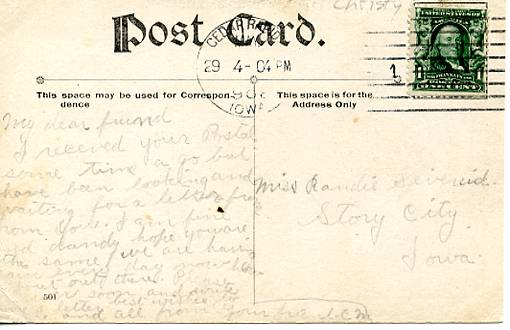 Christy
Post Card.
CEDAR RAPIDS
29 4-04 PM
190
IOWA
1
UNITED STATES OF AMERICA
ONE CENT
This space may be used for Correspon-
dence
This space is for the
Address Only
My dear friend
I received your Postal
some time a go but
have been looking and
waiting for a letter from
from you. I am fine
and dandy hope you are
the same, we are having
rain every day now how
about out there. Please
soon and write
a letter best wishes to
and all from your friend C.M.
Miss Randie Severeid.
Story City.
Iowa.
501